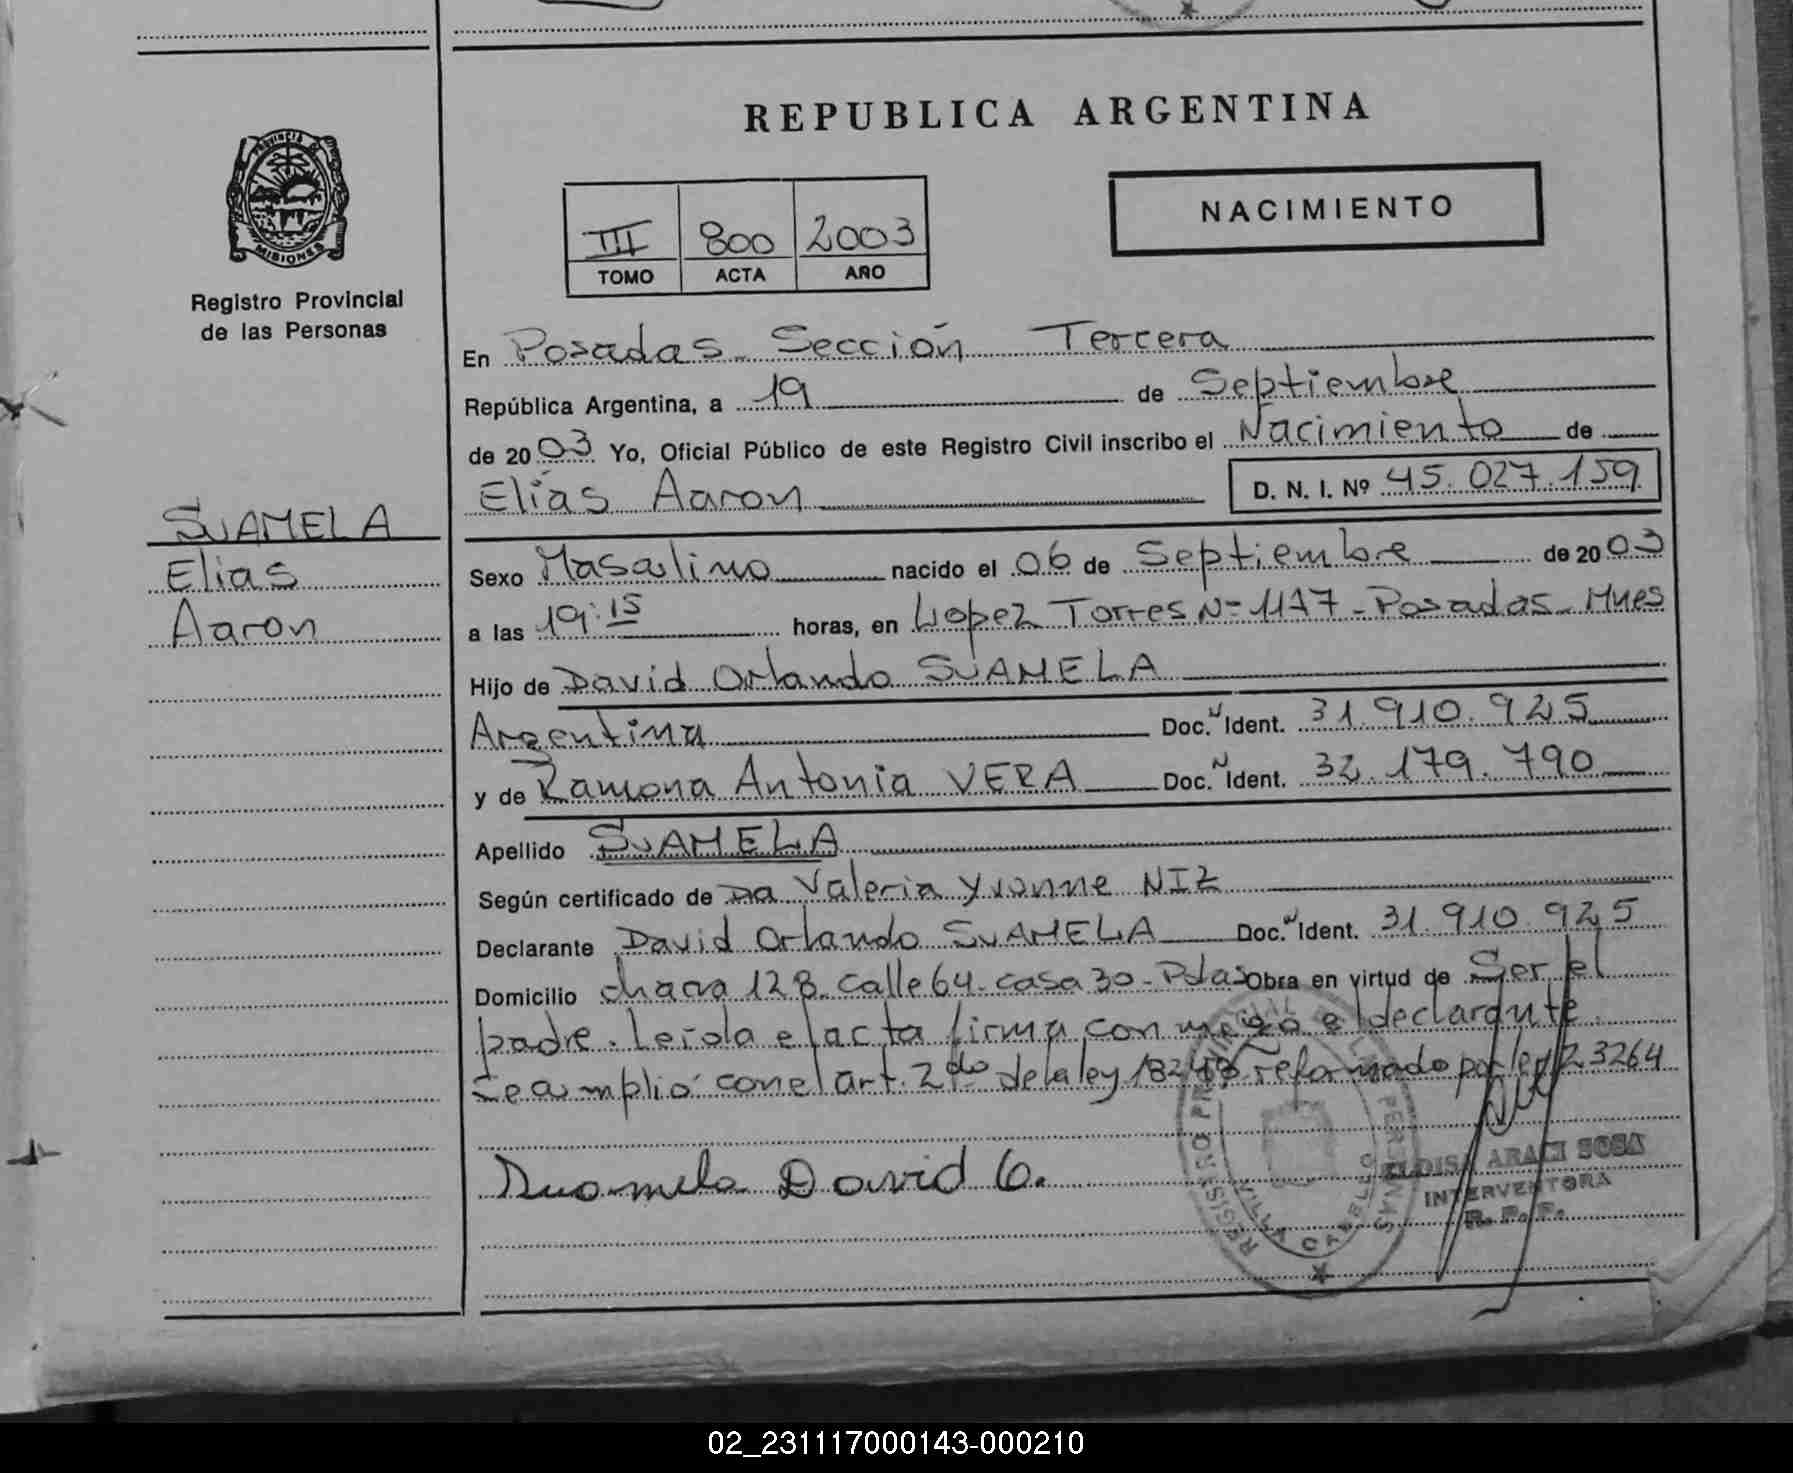 REPUBLICA ARGENTINA
PROVINCIA DE
MISIONES
Registro Provincial
de las Personas
NACIMIENTO
III 800 2003
TOMO ACTA AÑO
En Posadas Sección Tercera
República Argentina, a 19 de Septiembre
de 2003 Yo, Oficial Público de este Registro Civil inscribo el Nacimiento de
Elías Aaron D. N. I. Nº 45.027.159
SUAMELA
Elias
Aaron
Sexo Masculino nacido el 06 de Septiembre de 2003
a las 19:15 horas, en Lopez Torres Nº 1177 - Posadas - Mnes
Hijo de David Orlando SUAMELA
Argentina Doc. N Ident. 31.910.925
y de Ramona Antonia VERA Doc. N Ident. 32.179.790
Apellido SUAMELA
Según certificado de Da Valeria Yvonne NIZ
Declarante David Orlando SUAMELA Doc. N Ident. 31.910.925
Domicilio chacra 128. calle 64. casa 30 - Pdas Obra en virtud de Ser el
padre. Leída el acta firma conmigo el declarante.
se amplió con el art. 2do de la ley 18248 reformado por ley 23264
Suamela David O.
REGISTRO PROVINCIAL DE LAS PERSONAS
VILLA CABELLO
ELOISA ARACI SOSA
INTERVENTORA
R. P. P.
02_231117000143-000210